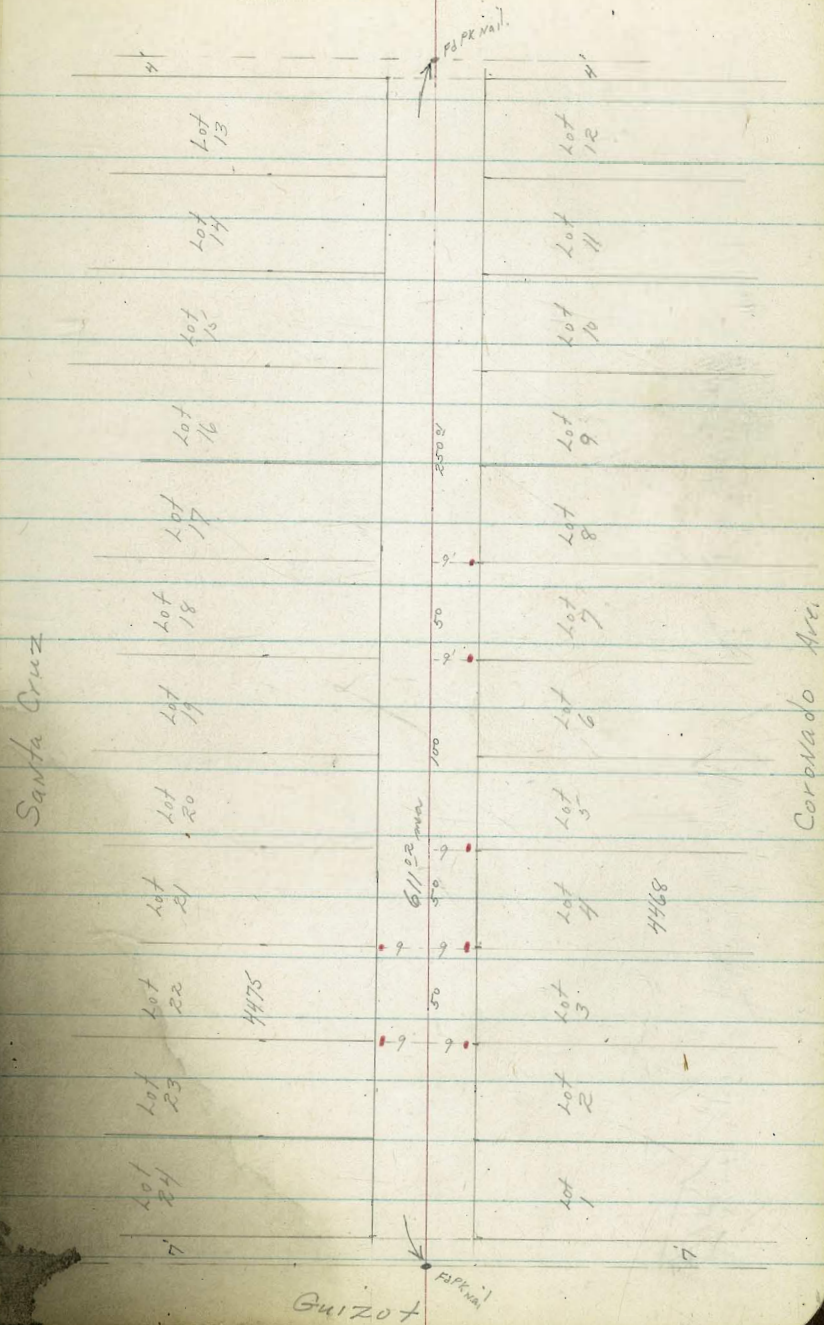 Fd PK Nail.
4'
4'
Lot
13
Lot
12
Lot
14
Lot
11
Lot
15
Lot
10
Lot
16
Lot
9
250
Lot
17
Lot
8
9'
Lot
18
50
Lot
7
9'
Santa Cruz
Lot
19
Lot
6
100
Coronado Ave.
Lot
20
Lot
5
611.02 mea
9
Lot
21
50
Lot
4
4468
9
9
Lot
22
4475
50
Lot
3
9
9
Lot
23
Lot
2
Lot
24
Lot
1
7'
7'
Fd PK Nail
Guizot